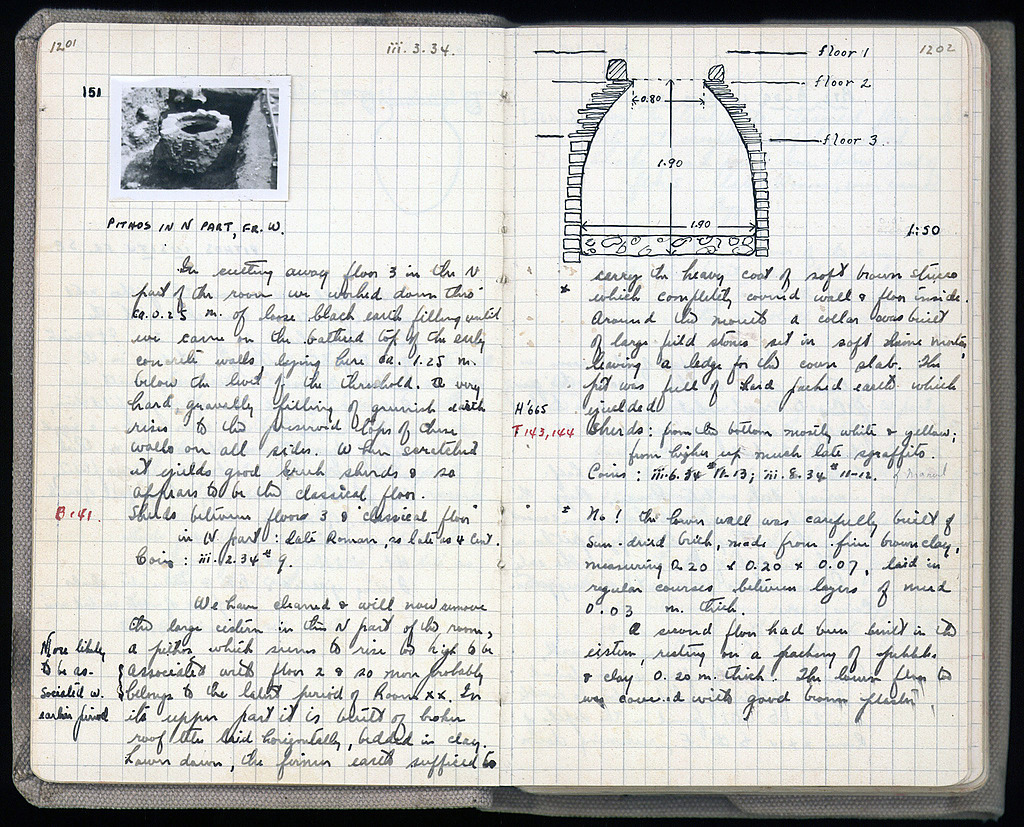 1201
iii. 3. 34.
151
PITHOS IN N PART, FR. W.
In cutting away floor 3 in the N
part of the room we worked down thro'
ca. 0.25 m. of loose black earth filling until
we came on the battered top of the early
concrete walls lying here ca. 1.25 m.
below the level of the threshold. A very
hard gravelly filling of greenish earth
rises to the preserved tops of these
walls on all sides. When scratched
it yields good Greek sherds & so
appears to be the classical floor.
B:41.
Sherds between floors 3 & "classical floor"
in N part: late Roman, so late as 4 cent.
Coin: iii.2.34 # 9.
We have cleaned & will now remove
the large cistern in this N part of the room,
a pithos which seems to rise too high to be
associated with floor 2 & so more probably
belongs to the latest period of Room XX. In
its upper part it is built of broken
roof tiles laid horizontally, bedded in clay.
Lower down, the firmer earth sufficed to
More likely
to be as-
sociated w.
earlier period
1202
floor 1
floor 2
0.80
floor 3
1.90
1.90
1:50
carry the heavy coat of soft brown stucco
* which completely covered wall & floor inside.
Around the mouth a collar was built
of large field stones set in soft lime mortar,
leaving a ledge for the cover slab. The
pit was full of hard packed earth which
yielded
H'665
F 143, 144
Sherds: from the bottom mostly white & yellow;
from higher up much late sgraffito.
Coins: iii.6.34 # 11-13; iii.8.34 # 11-12.
* No! The lower wall was carefully built of
sun-dried brick, made from fine brown clay,
measuring 0.20 x 0.20 x 0.07, laid in
regular courses between layers of mud
0.03 m. thick.
A second floor had been built in the
cistern, resting on a packing of pebbles
& clay 0.20 m. thick. The lower floor too
was covered with good brown plaster.